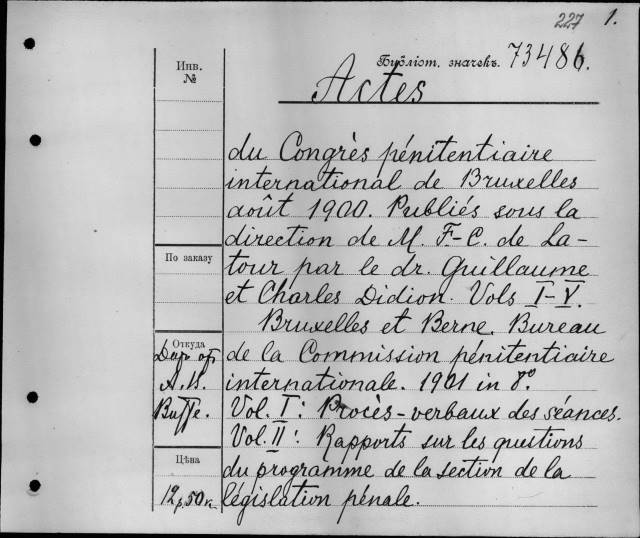 227 1.
Инв.
№
Библіот. значекъ. 73486.
Actes
du Congrès pénitentiaire
international de Bruxelles
août 1900. Publiés sous la
direction de M. F.-C. de La-
По заказу
tour par le dr. Guillaume
et Charles Didion. Vols I-V.
Bruxelles et Berne. Bureau
Откуда
de la Commission pénitentiaire
internationale. 1901 in 8.º
Vol. I: Procès-verbaux des séances.
Vol. II: Rapports sur les questions
Цѣна
du programme de la section de la
12 р. 50 к.
législation pénale.